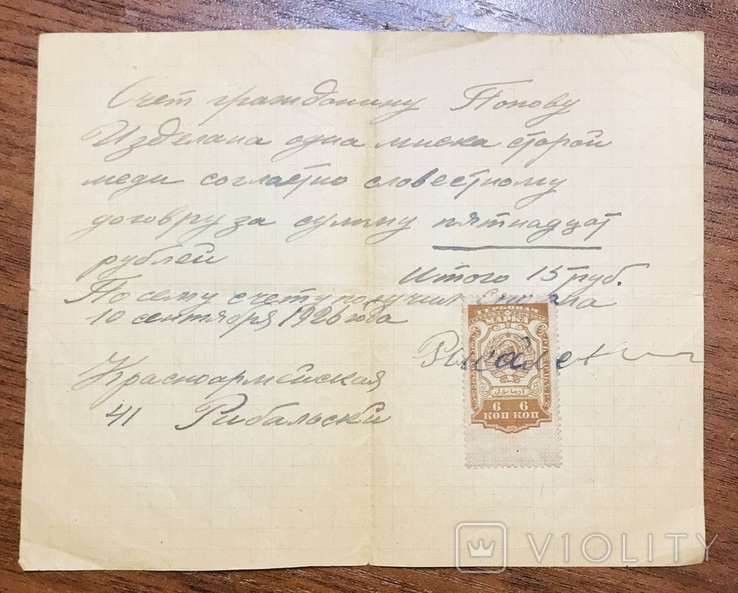 Счет гражданину Попову
Изделана одна миска старой
меди согласно словестному
договру за сумму пятнадцат
рублей
Итого 15 руб.
По сему счету получил сполна
10 сентября 1926 года
Красноармейская
41 Рибальский
ГЕРБОВАЯ
МАРКА
6 6
КОП КОП
VIOLITY